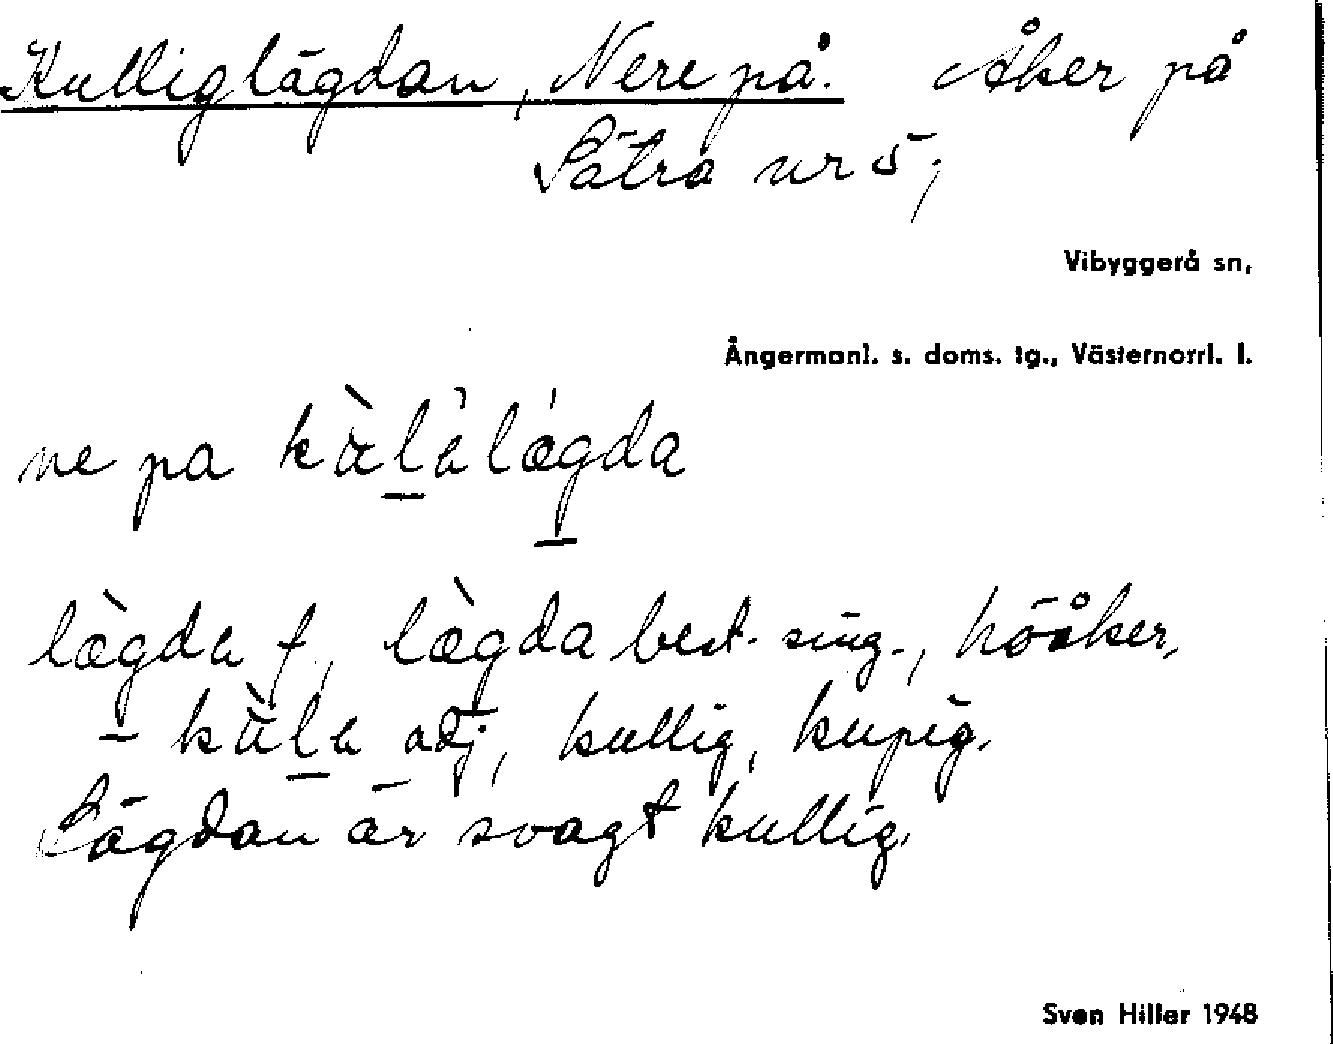 Kulliglägdan, Nere på. Åker på
Sätra nr 5,
Vibyggerå sn,
Ångermanl. s. doms. tg., Västernorrl. l.
ne pa kàlálægda
lægda f., lægda best. sing., höåker,
- kàla adj, kullig, kupig.
Lägdan är svagt kullig.
Sven Hiller 1948